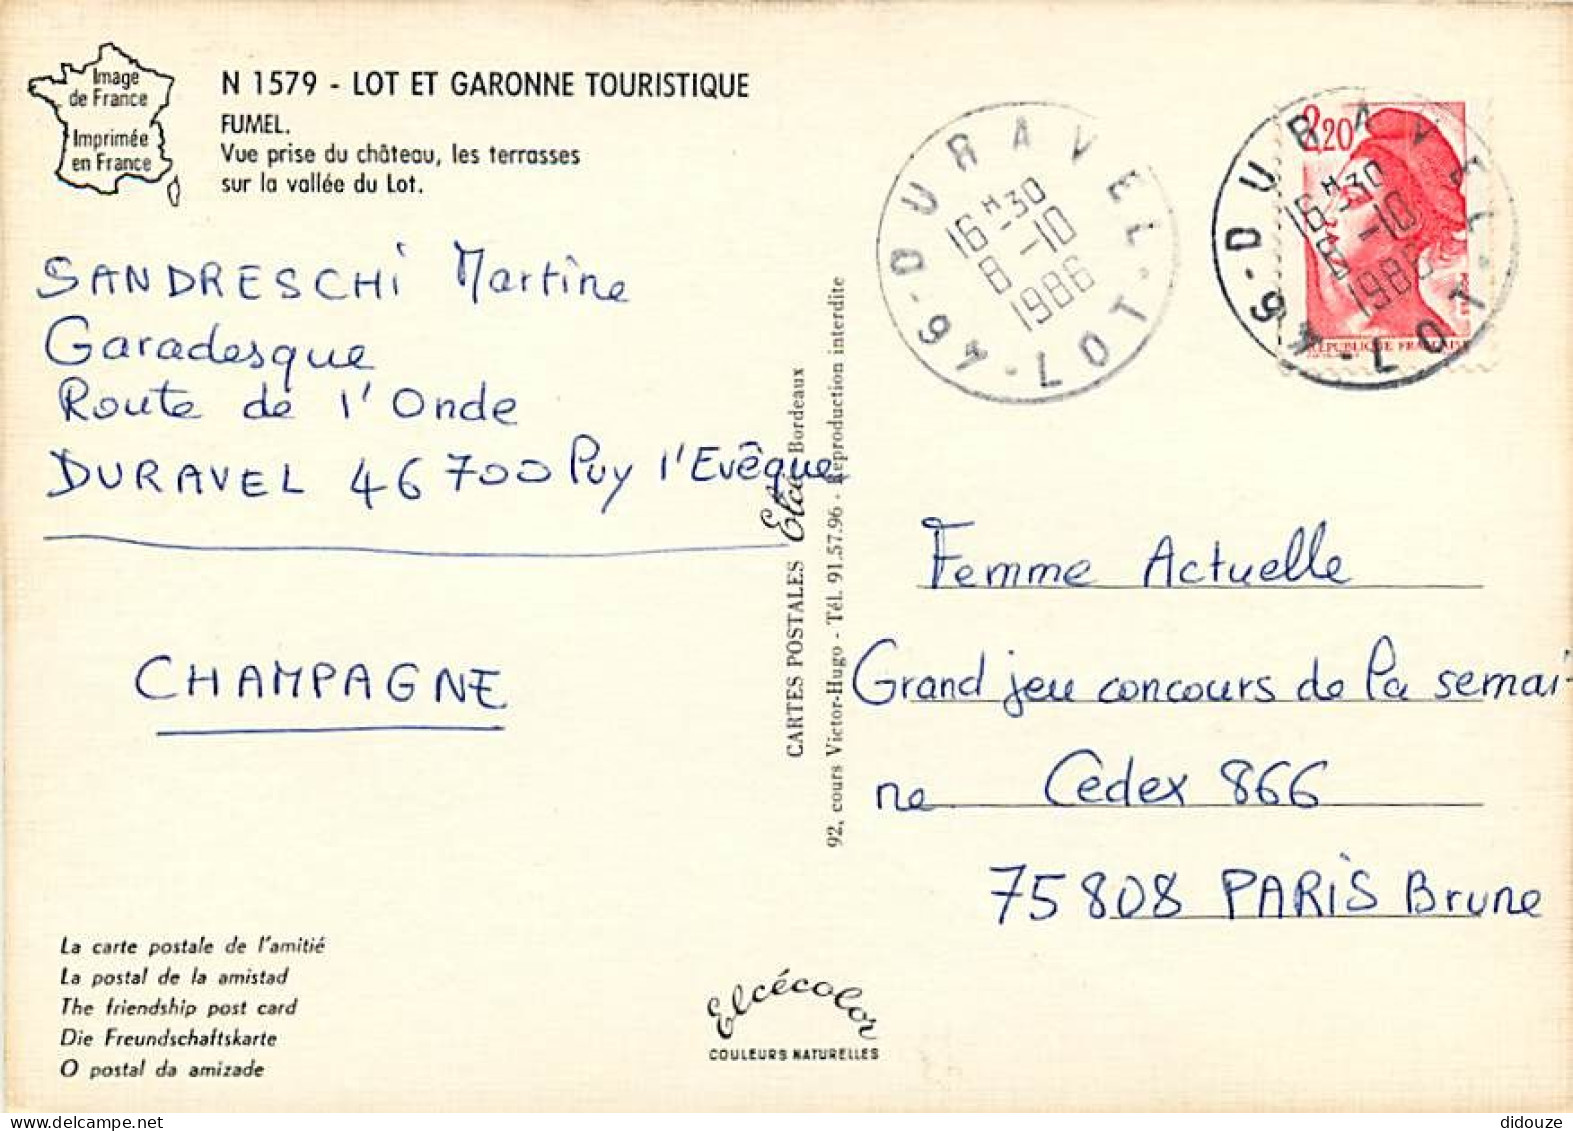 Image
de France
Imprimée
en France
N 1579 - LOT ET GARONNE TOURISTIQUE
FUMEL.
Vue prise du château, les terrasses
sur la vallée du Lot.
SANDRESCHi Martine
Garadesque
Route de l'Onde
DURAVEL 46700 Puy l'Evêque
CHAMPAGNE
La carte postale de l'amitié
La postal de la amistad
The friendship post card
Die Freundschaftskarte
O postal da amizade
CARTES POSTALES Elcé Bordeaux
92, cours Victor-Hugo - Tél. 91.57.96 - Reproduction interdite
Elcécolor
COULEURS NATURELLES
DURAVEL
16H30
8-10
1986
46 - LOT
2,20
RÉPUBLIQUE FRANÇAISE
DURAVEL
16H30
8-10
1986
46 - LOT
Femme Actuelle
Grand jeu concours de la semai-
ne Cedex 866
75808 PARiS Brune
didouze